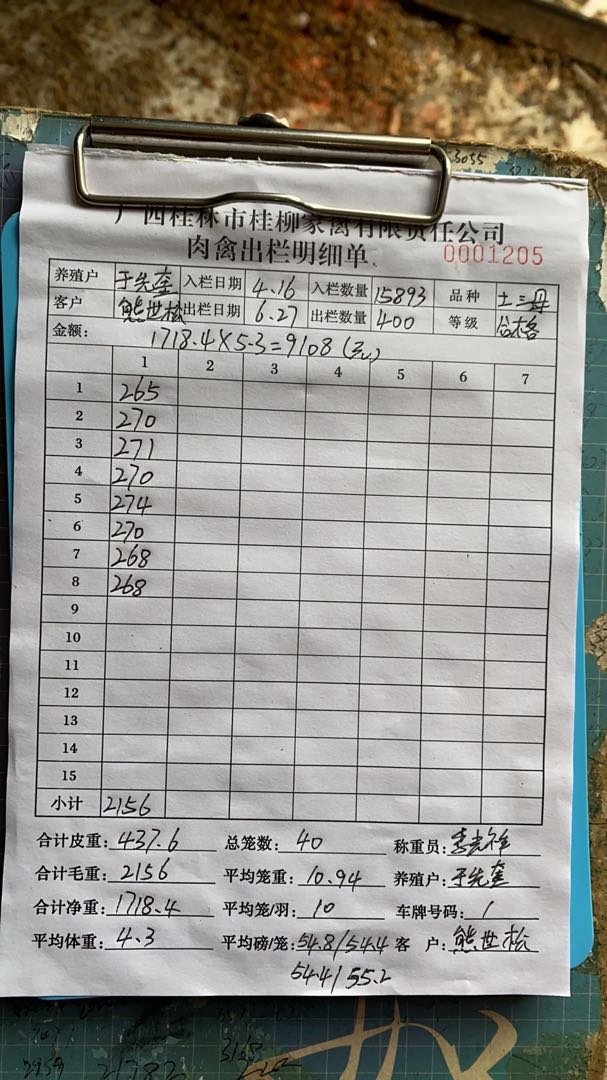 广西桂林市桂柳家禽有限责任公司
肉禽出栏明细单
0001205
养殖户 于先奎 入栏日期 4.16 入栏数量 15893 品种 土三母
客户 熊世松 出栏日期 6.27 出栏数量 400 等级 合格
金额: 1718.4×5.3=9108(元)
1 2 3 4 5 6 7
1 265
2 270
3 271
4 270
5 274
6 270
7 268
8 268
9
10
11
12
13
14
15
小计 2156
合计皮重: 437.6 总笼数: 40 称重员:
合计毛重: 2156 平均笼重: 10.94 养殖户: 于先奎
合计净重: 1718.4 平均笼/羽: 10 车牌号码: /
平均体重: 4.3 平均磅/笼: 54.8/54.4 客 户: 熊世松
54.4/55.2
3055